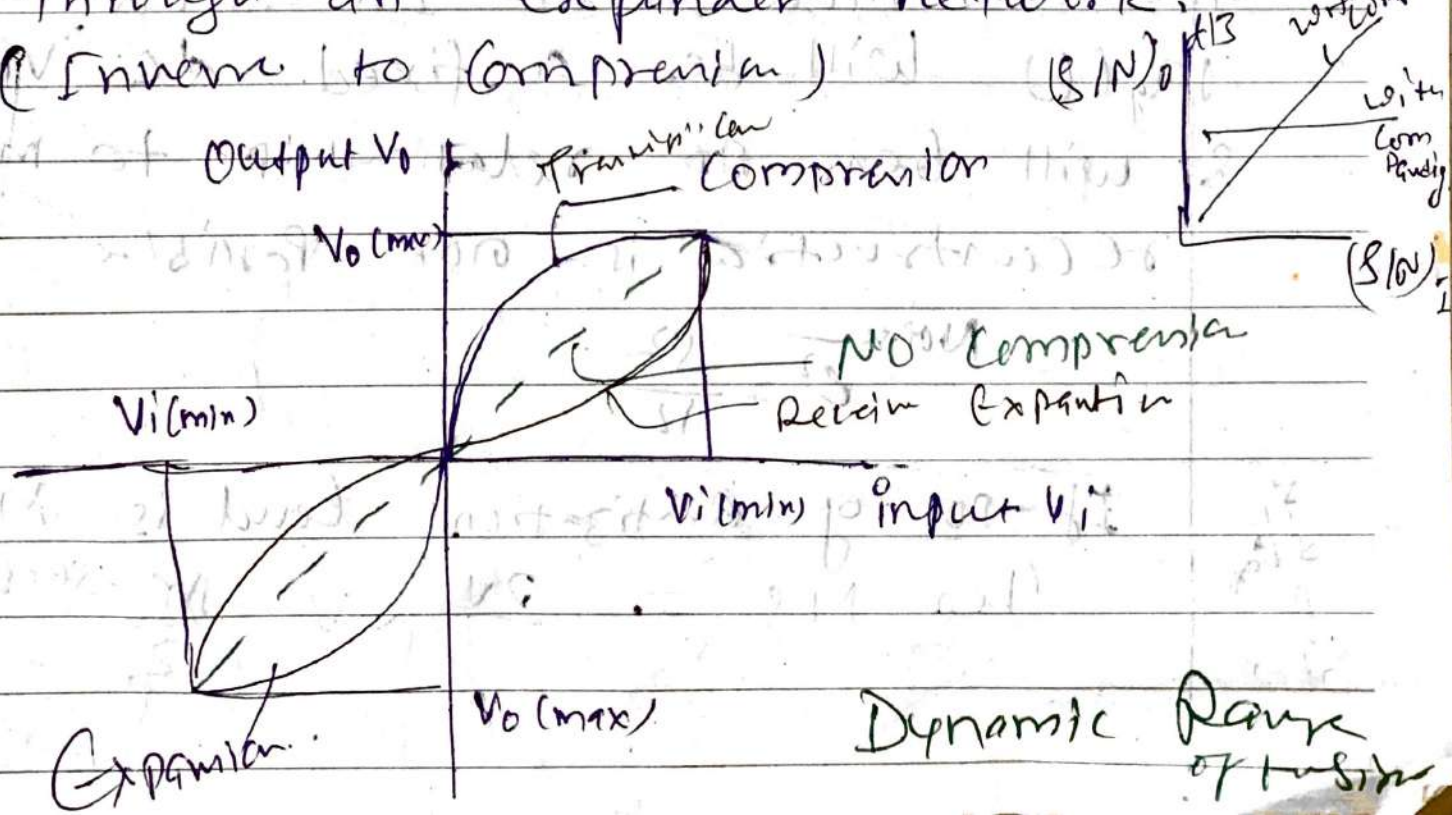 Through an Expander Network.
(Inverse to Compression)
(S/N)o dB
with
Com
Panding
(S/N)i
Output Vo
Compression
Vo (max)
NO Compression
Receive Expantion
Vi(min)
Vi(min) input Vi
Vo (max)
Expansion
Dynamic Range
of